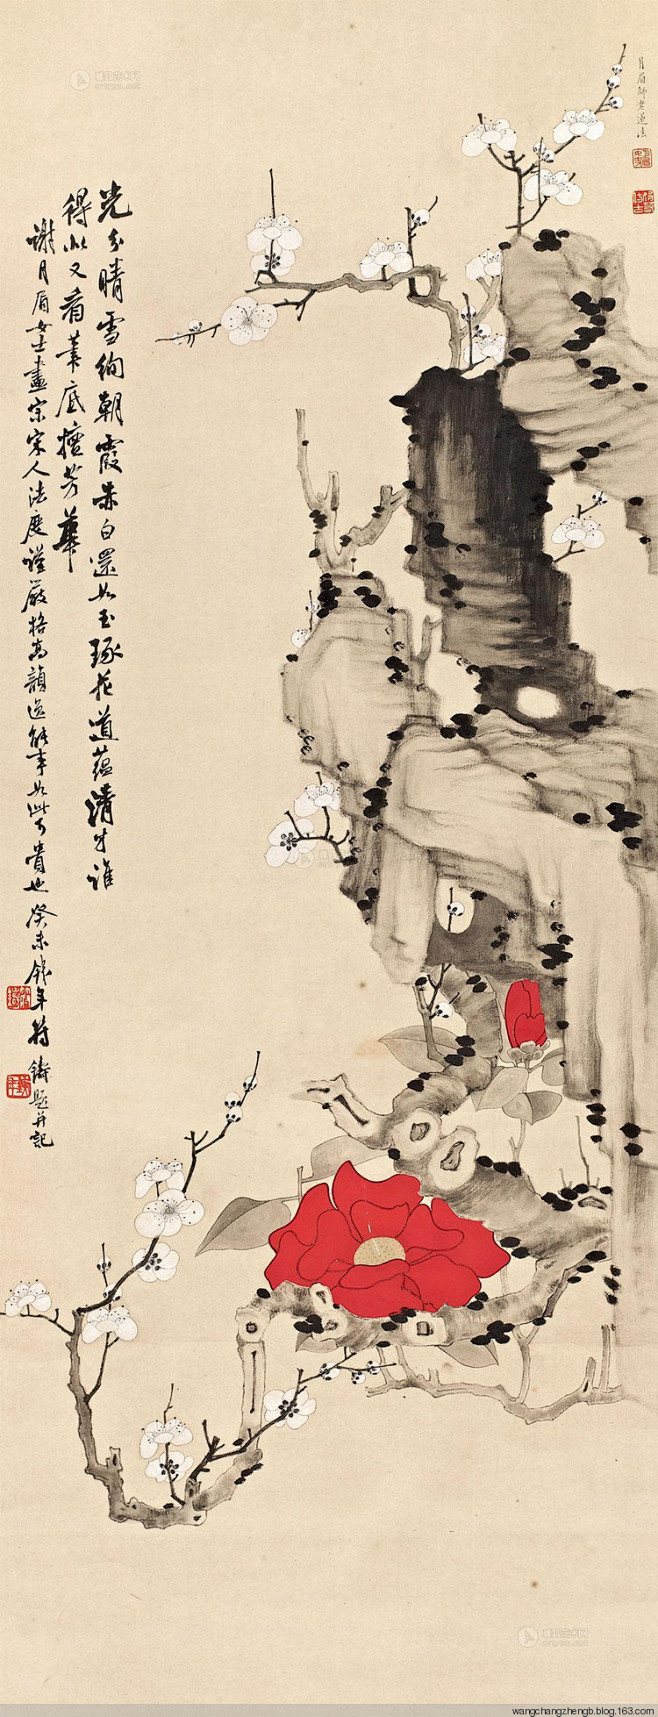 月眉師老蓮法
光分晴雪絢朝霞赤白還如玉琢花道蘊清才誰
得似又看筆底擅芳華
謝月眉女士畫宗宋人法度謹嚴格高韻逸能事如此可貴也癸未錢年符鑄題并記
wangchangzhengb.blog.163.com